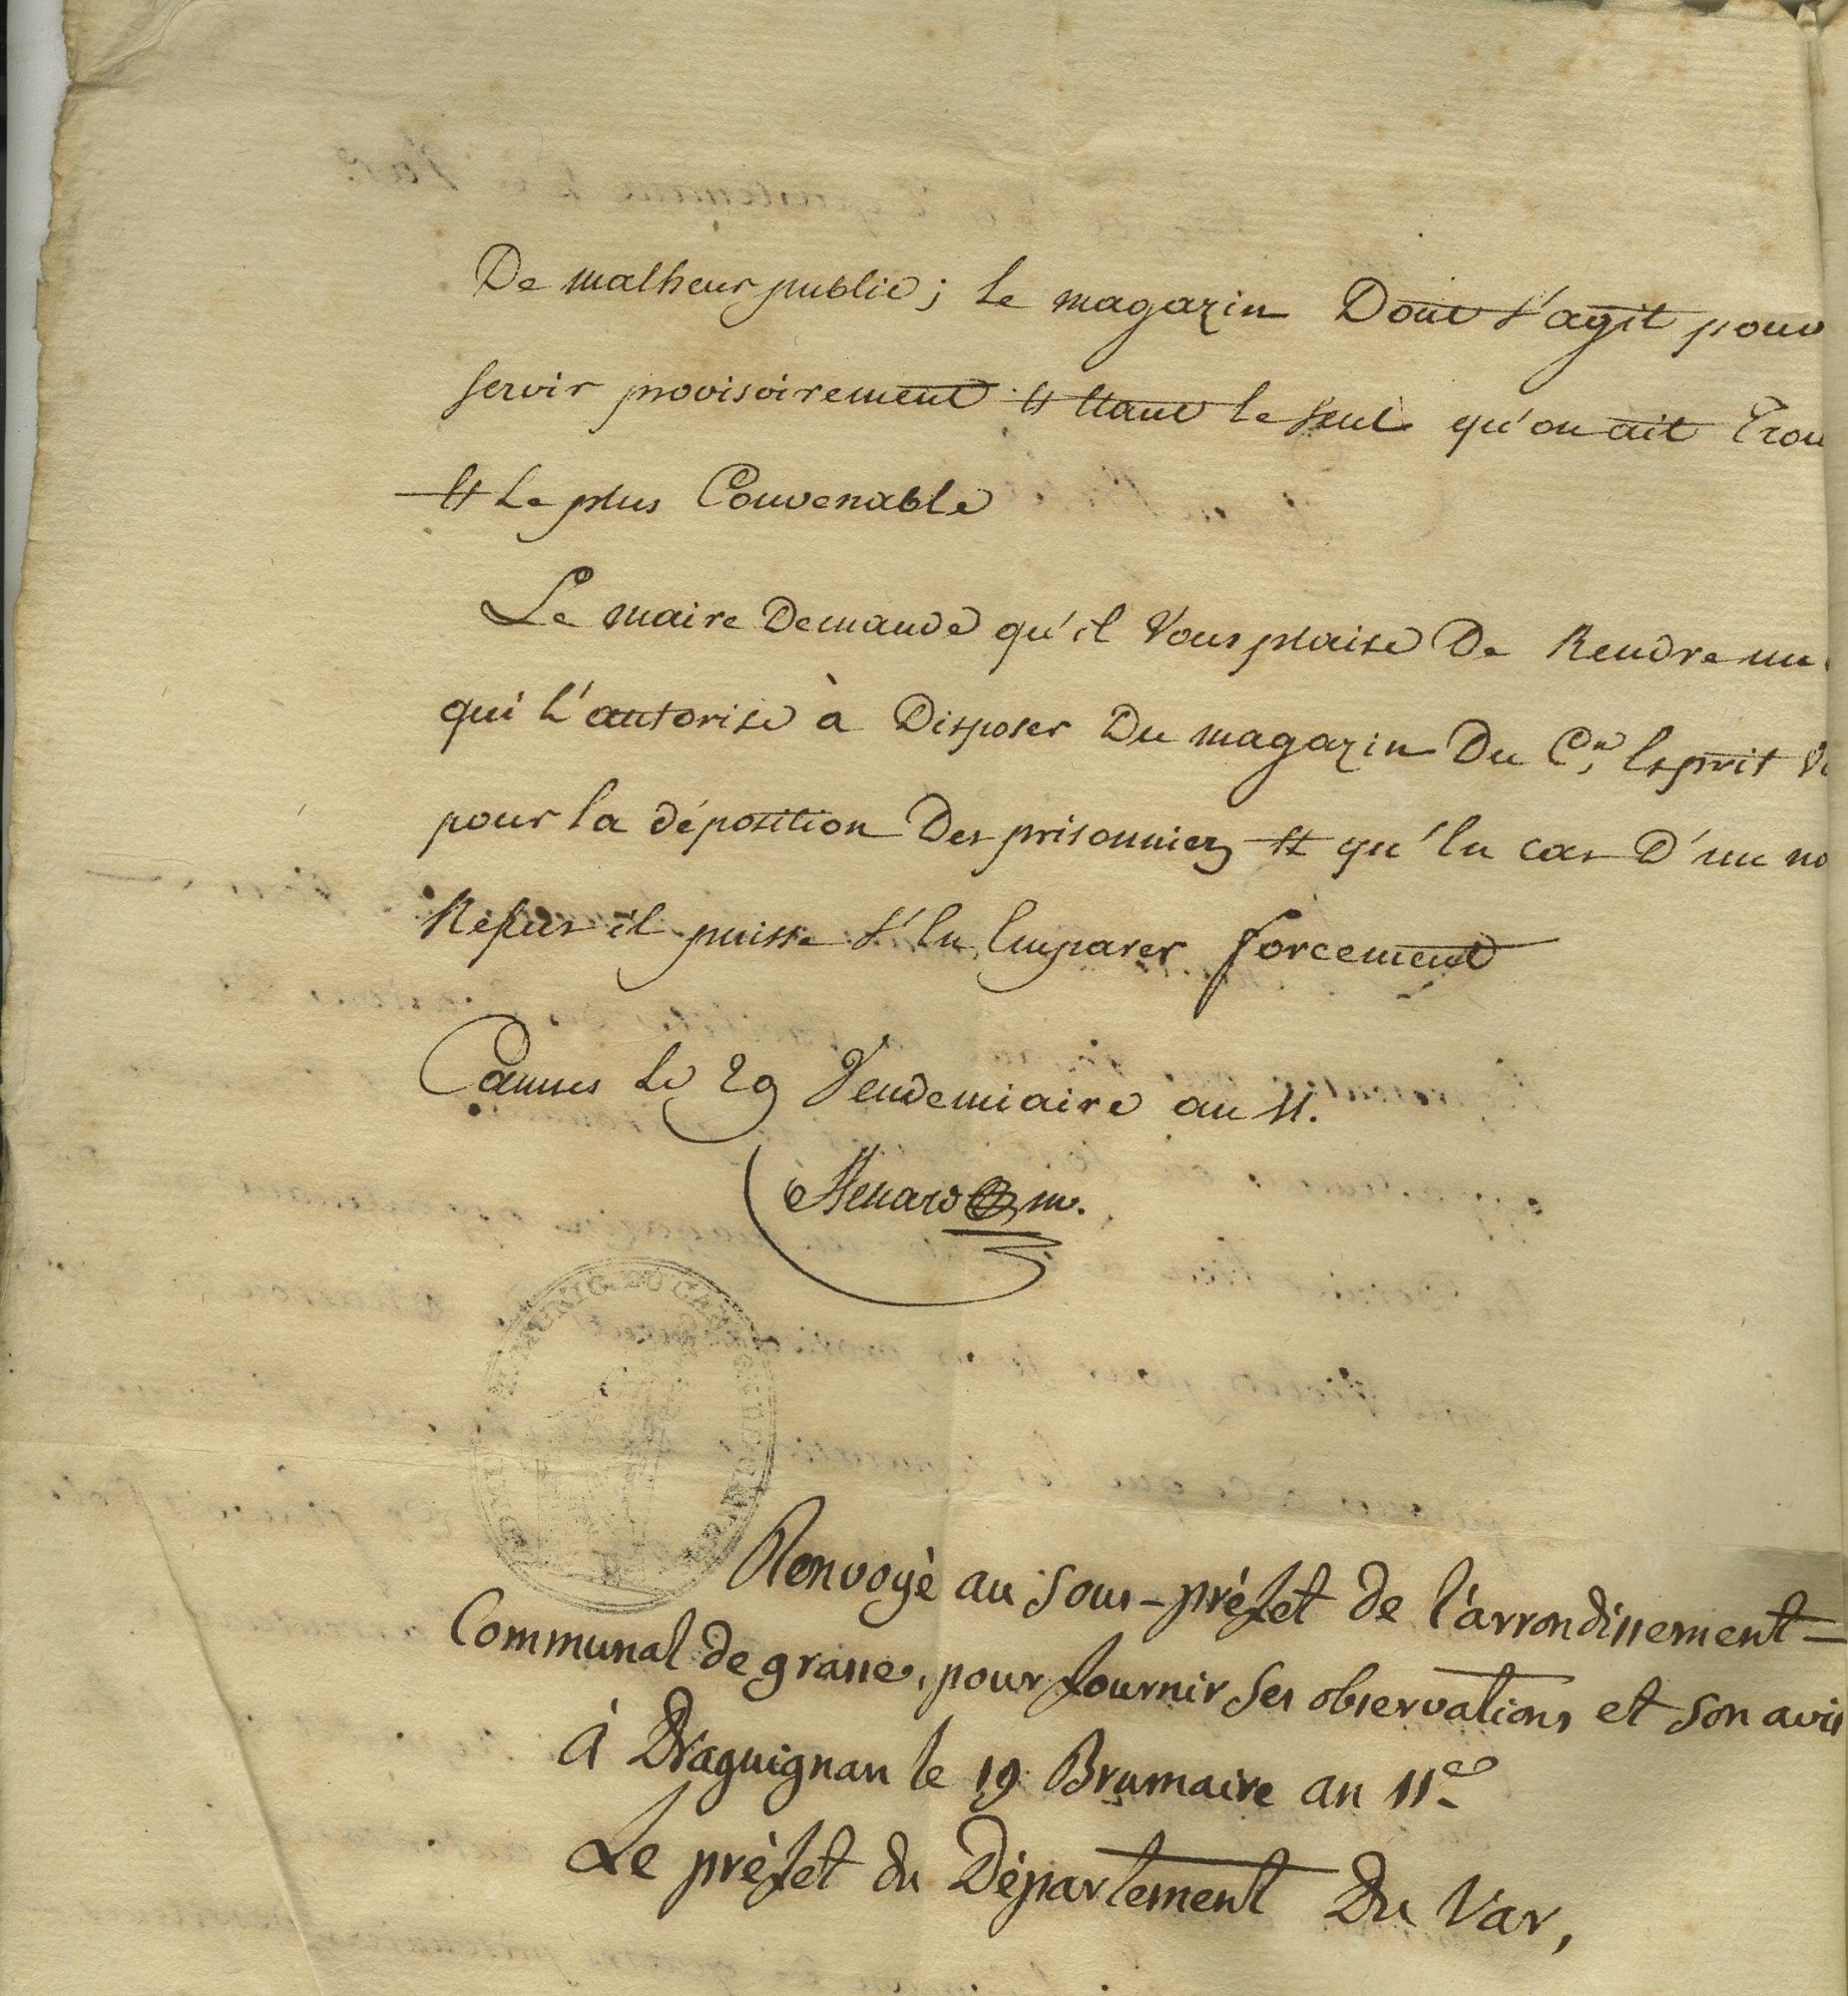 De malheur public; le magazin Dont s'agit pour
servir provisoirement et étant le seul qu'on ait trou
et le plus Convenable
Le maire Demande qu'il Vous plaise De Rendre un
qui l'autorise à Disposer Du magazin Du Cn Esprit
pour la déposition Des prisonniers et qu'en cas D'un no
Refus il puisse s'en Emparer forcement
Cannes le 29 Vendemiaire an 11.
m.
MUNIC. DU CAN
Renvoyé au sous-préfet de l'arrondissement
Communal de grasse, pour fournir ses observations et son avis
à Draguignan le 19 Brumaire an 11e
Le préfet du Département Du Var,